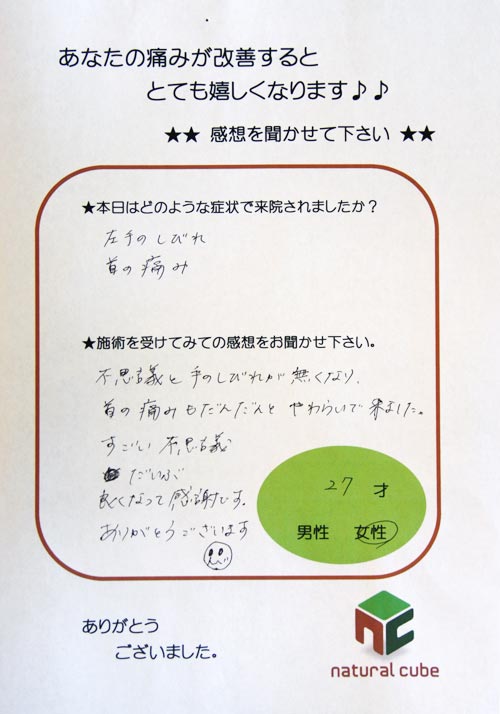 あなたの痛みが改善すると
とても嬉しくなります♪♪
★★ 感想を聞かせて下さい ★★
★本日はどのような症状で来院されましたか？
左手のしびれ
首の痛み
★施術を受けてみての感想をお聞かせ下さい。
不思議と手のしびれが無くなり、
首の痛みもだんだんと やわらいで来ました。
すごい不思議
だいぶ
良くなって感謝です。
ありがとうございます
27 才
男性 女性
ありがとう
ございました。
nc
natural cube